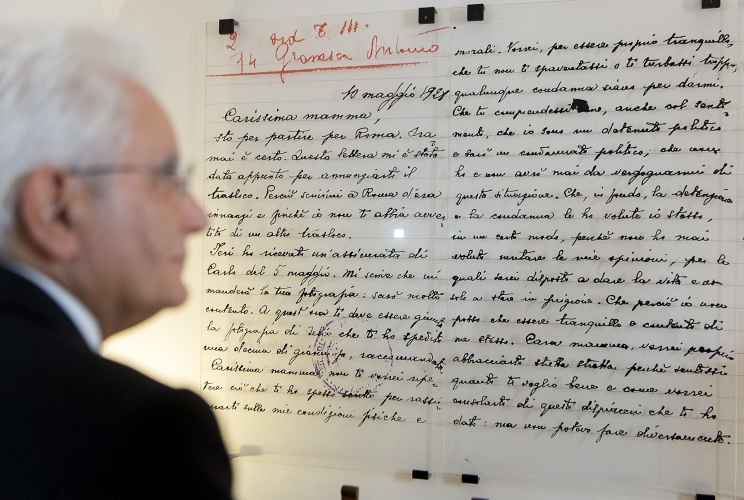 2 ord T. III.
14 Gramsci Antonio
10 maggio 1928
Carissima mamma,
sto per partire per Roma. Ora
mai è certo. Questa lettera mi è stata
data appunto per annunziarti il
trasloco. Perciò scrivimi a Roma d'ora
innanzi e finché io non ti abbia avver
tito di un altro trasloco.
Ieri ho ricevuto un'assicurata di
Carlo del 5 maggio. Mi scrive che mi
manderà la tua fotografia: sarò molto
contento. A quest'ora ti deve essere giunta
la fotografia di Delio che ti ho spedito
una decina di giorni fa, raccomandata
Carissima mamma, non ti vorrei ripe
tere ciò che ti ho spesso scritto per rassi
curarti sulle mie condizioni fisiche e
morali. Vorrei, per essere proprio tranquillo,
che tu non ti spaventassi o ti turbassi troppo,
qualunque condanna siano per darmi.
Che tu comprendessi bene, anche col senti
mento, che io sono un detenuto politico
e sarò un condannato politico, che non
ho e non avrò mai da vergognarmi di
questa situazione. Che, in fondo, la detenzione
e la condanna le ho volute io stesso,
in un certo modo, perché non ho mai
voluto mutare le mie opinioni, per le
quali sarei disposto a dare la vita e non
solo a stare in prigione. Che perciò io non
posso che essere tranquillo e contento di
me stesso. Cara mamma, vorrei proprio
abbracciarti stretta stretta perché sentissi
quanto ti voglio bene e come vorrei
consolarti di questo dispiacere che ti ho
dato: ma non potevo fare diversamente.